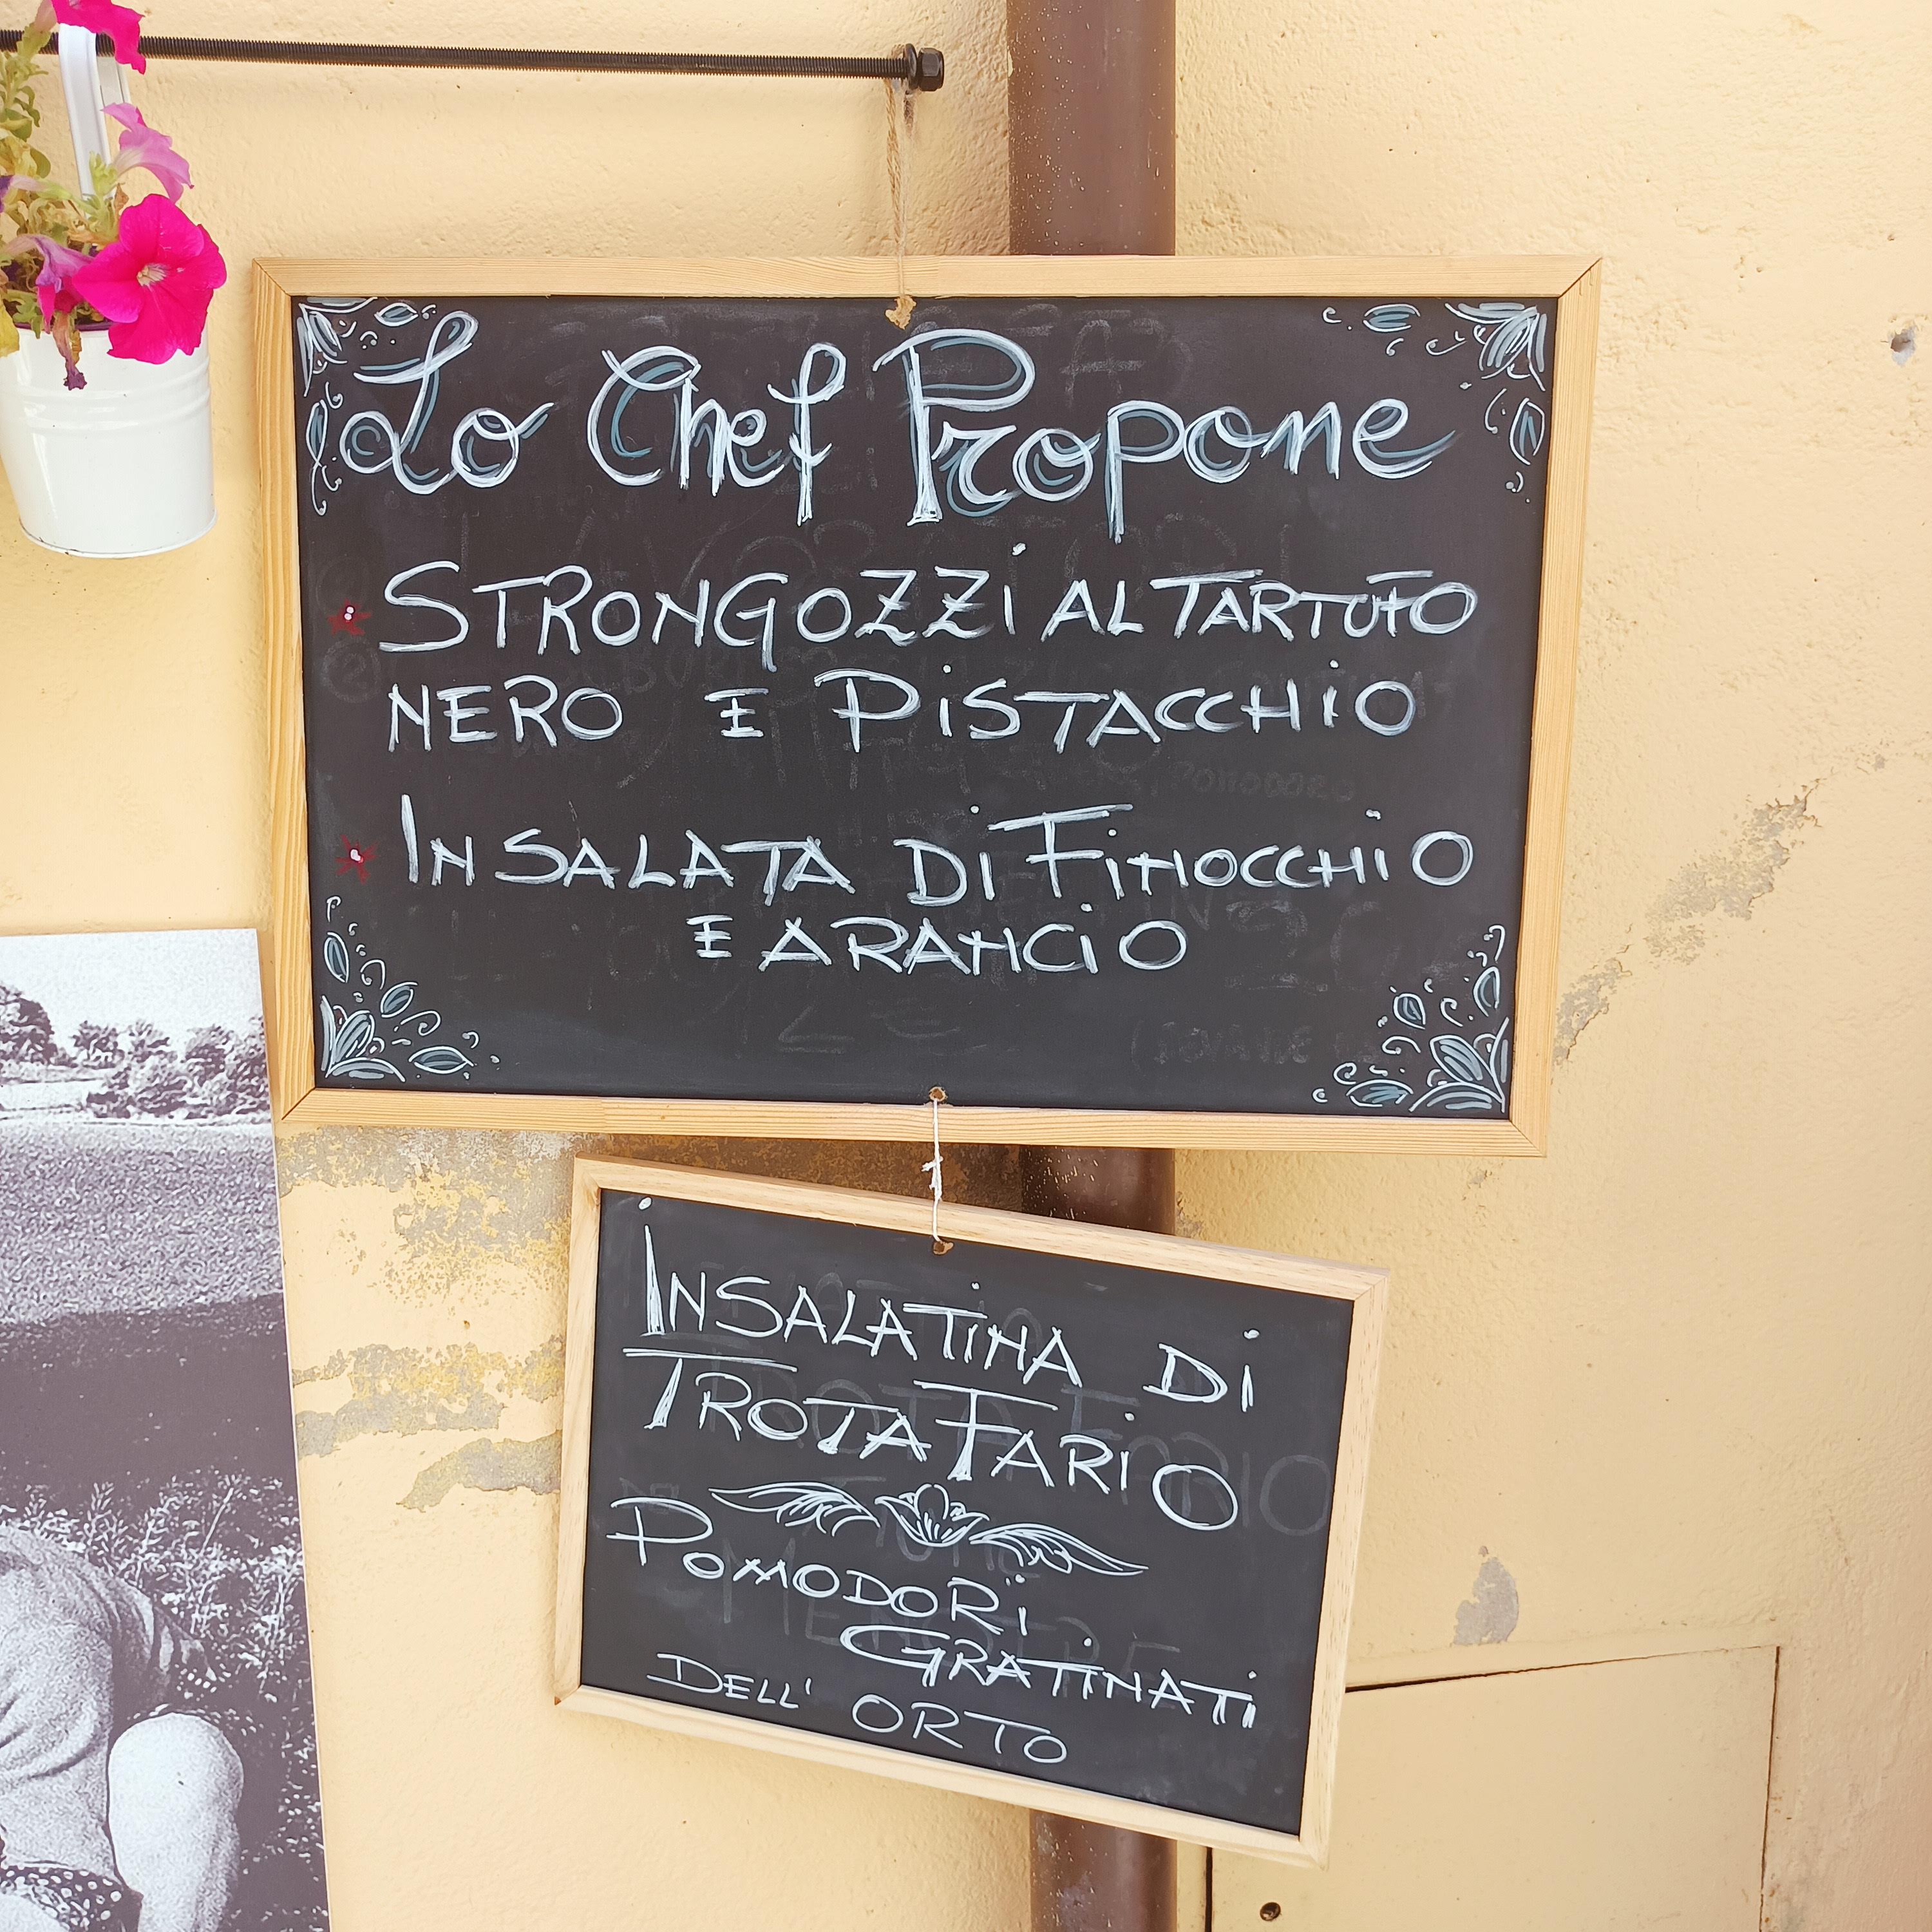 Lo Chef Propone
STRONGOZZi AL TARTUFO
NERO E PiSTACCHiO
INSALATA Di FiNOCCHiO
E ARANCiO
iNSALATiNA Di
TROTA FARiO
POMODORi
GRATiNATi
DELL' ORTO